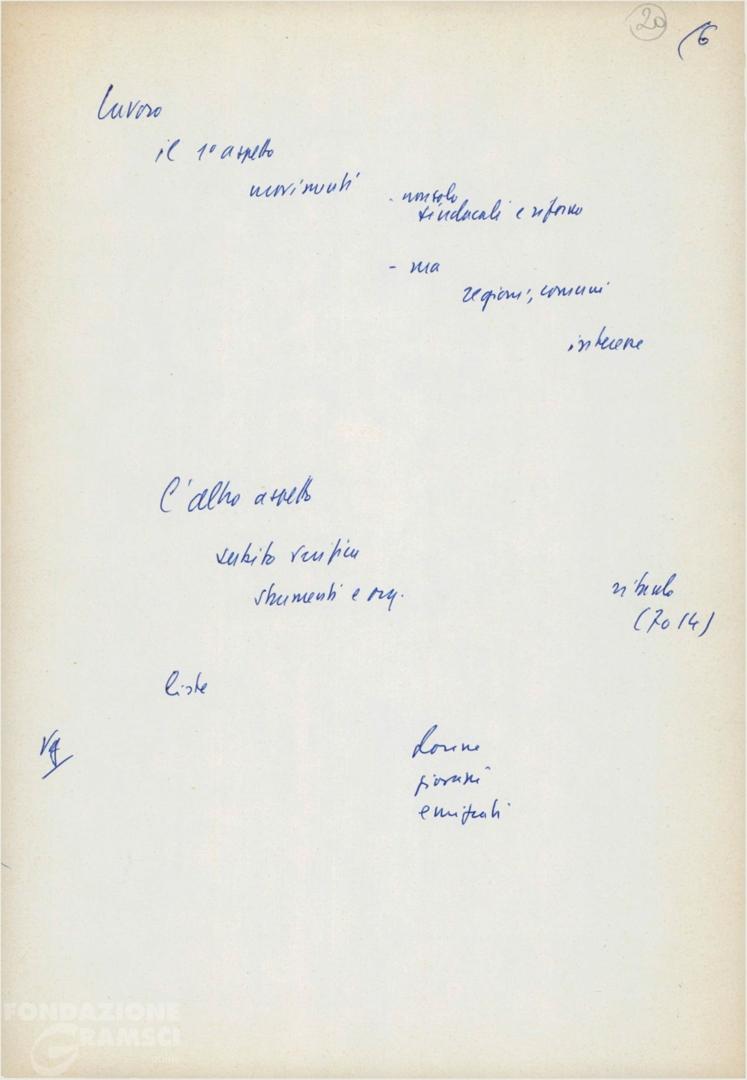 20
(6
lavoro
il 1° aspetto
movimenti
- non solo
sindacali e riforme
- ma
regioni, comuni
insieme
L'altro aspetto
subito verifica
strumenti e org.
(7014)
liste
donne
giovani
emigrati
FONDAZIONE
GRAMSCI